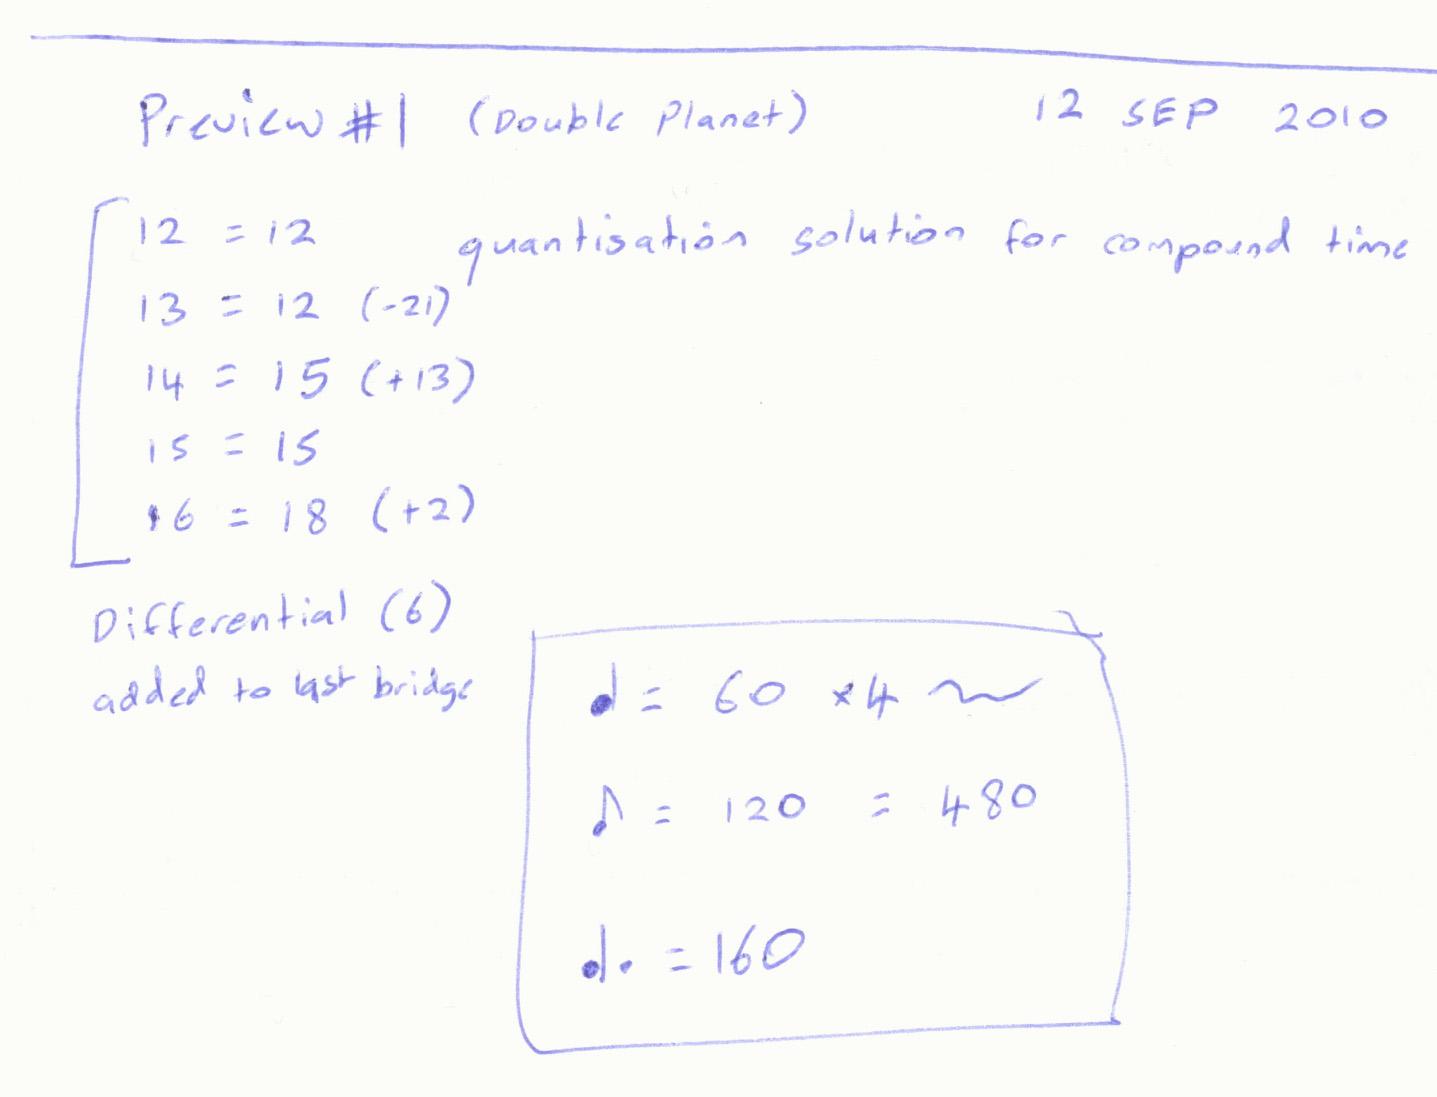 Preview #1 (Double Planet) 12 SEP 2010
12 = 12 quantisation solution for compound time
13 = 12 (-21)
14 = 15 (+13)
15 = 15
16 = 18 (+2)
Differential (6)
added to last bridge
♩ = 60 ×4
♪ = 120 = 480
♩. = 160